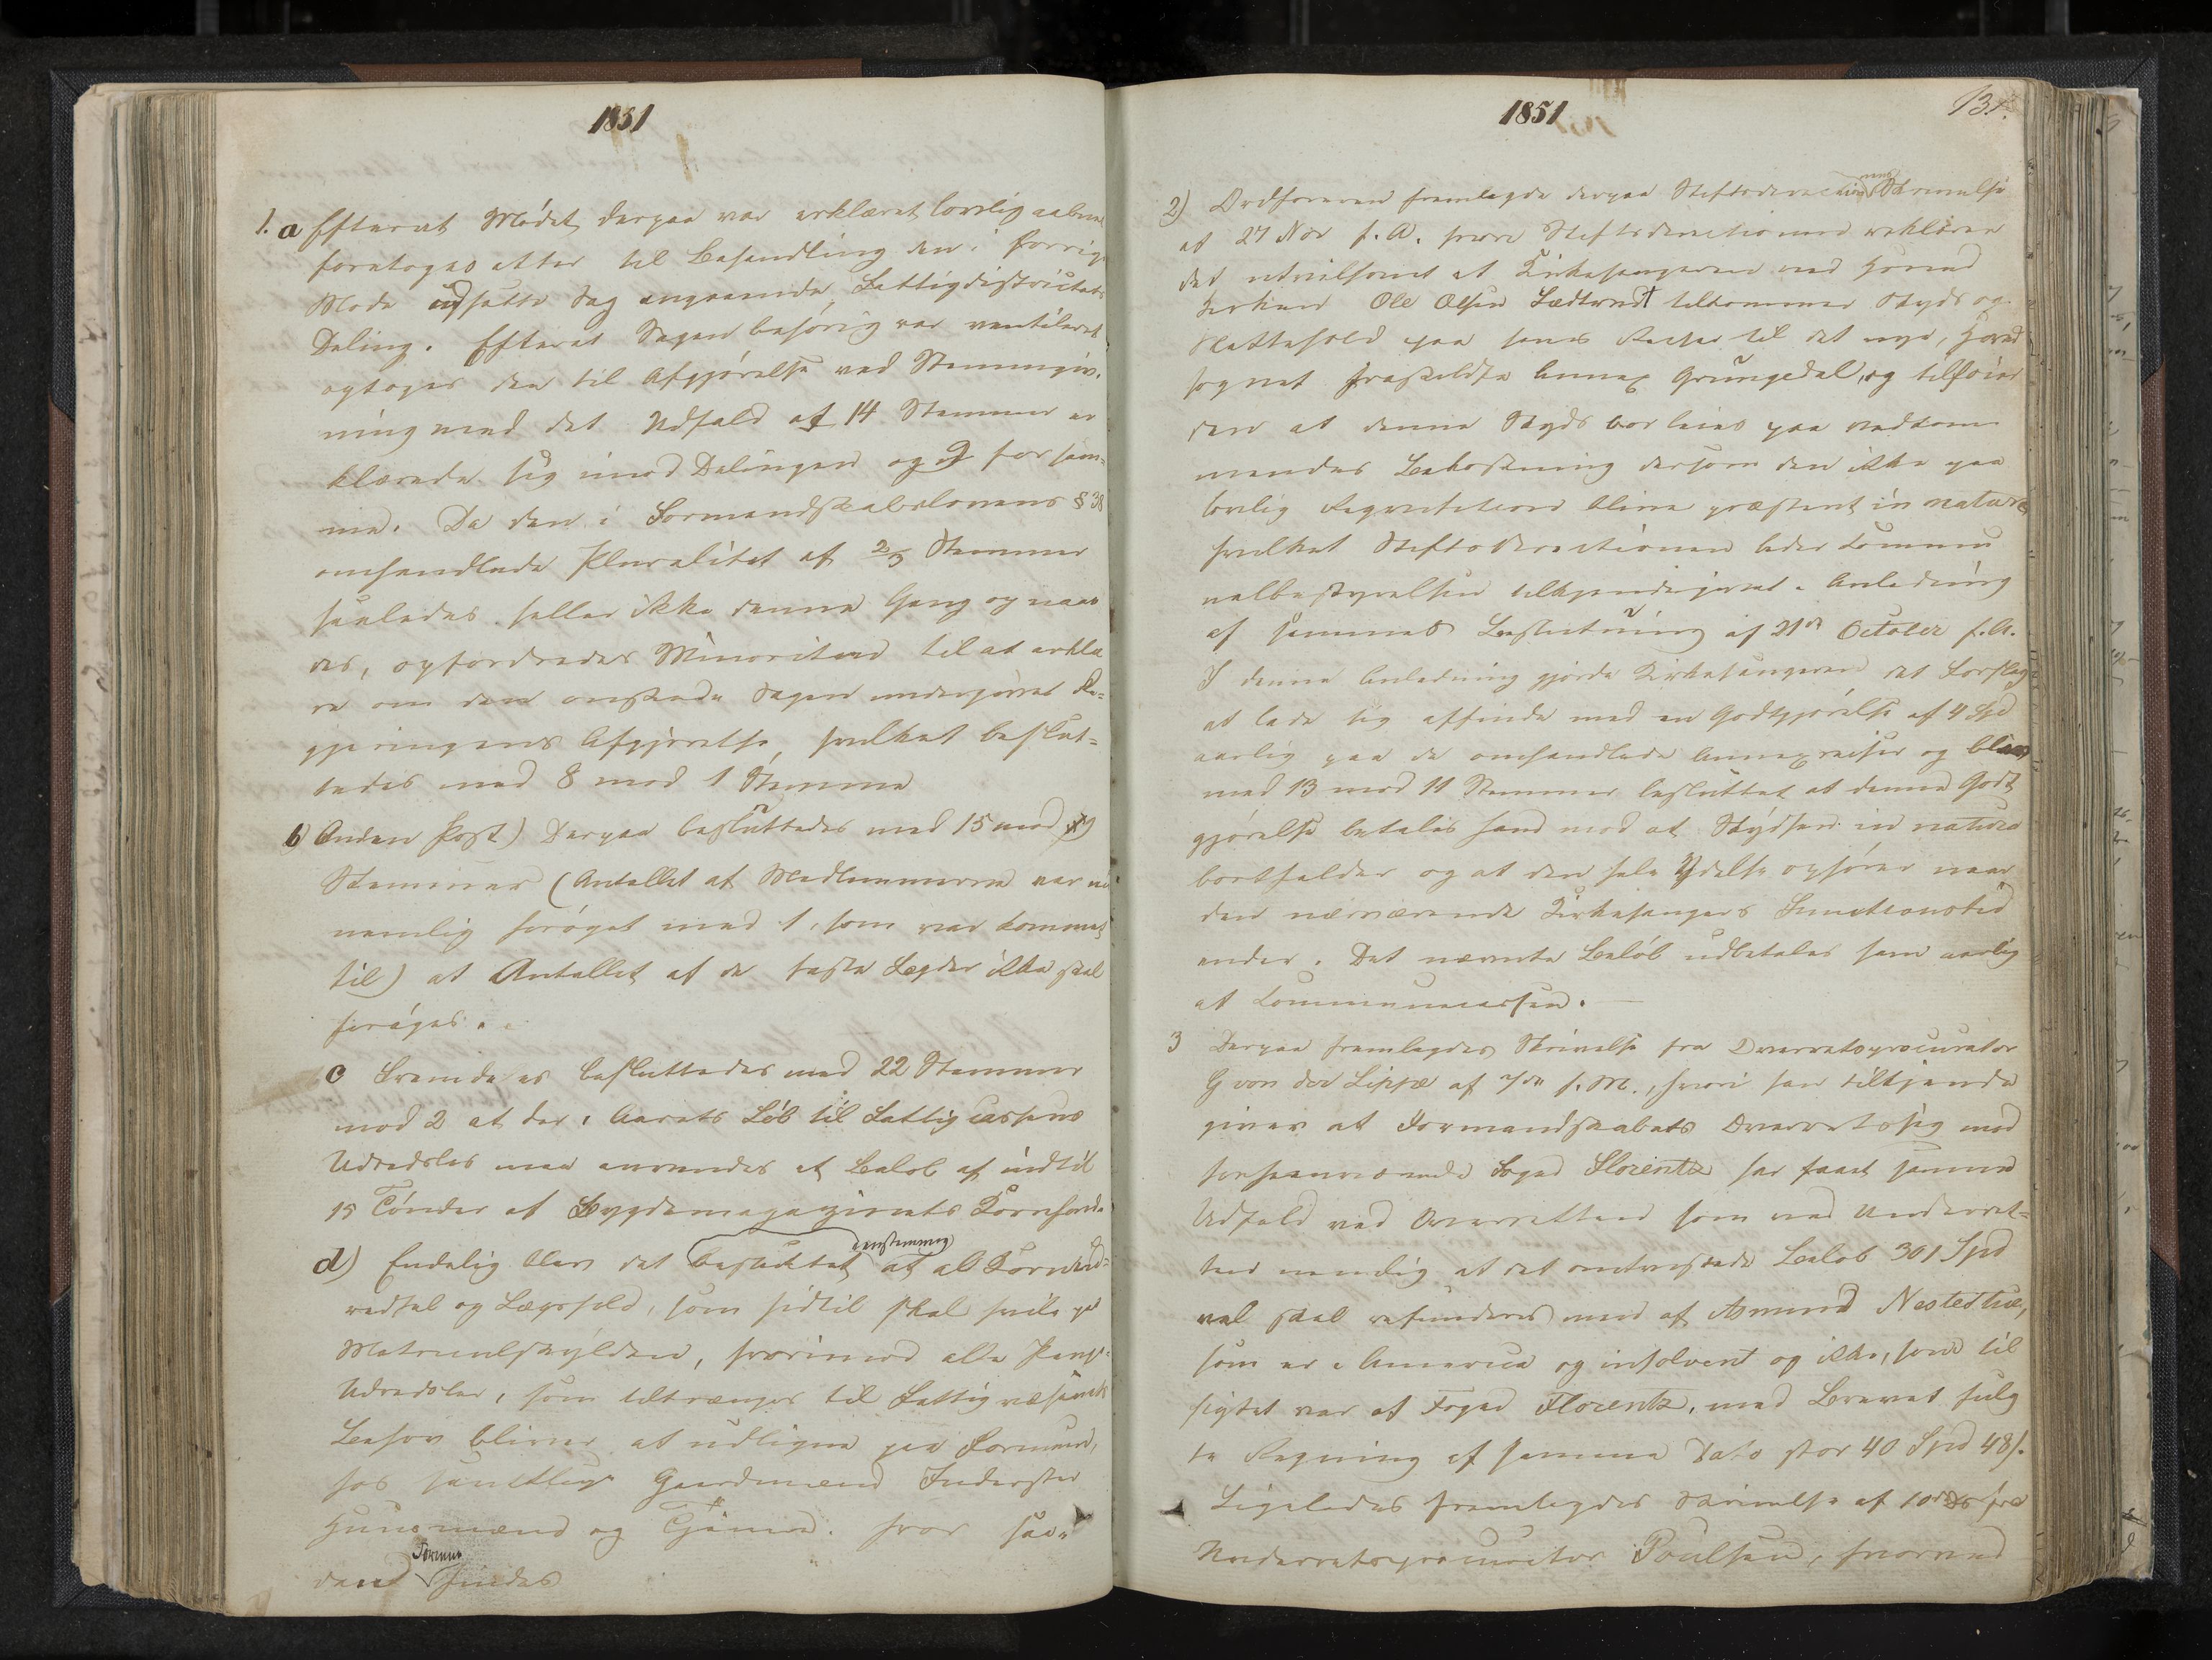 1851
1. a Efterat Mødet derpaa var erklæret lovlig aabnet
foretoges atter til Behandling den i forrige
Møde udsatte Sag angaaende Fattigdistrictets
Deling. Efterat Sagen behørig var ventileret
optoges den til Afgjørelse ved Stemmegiv-
ning med det Udfald at 14 Stemmer er
klærede sig imod Delingen og 9 for sam-
me. Da den i Formandskabslovens § 38
omhandlede Pluralitet af 2/3 Stemmer
saaledes heller ikke denne Gang opnaae
des, opfordredes Minoriteten til at erklæ
re om den ønskede Sagen undergivet Re-
gjeringens Afgjørelse, hvilket beslut-
tedes med 8 mod 1 Stemme
b) Anden Post) Derpaa besluttedes med 15 mod 9
Stemmer (Antallet af Medlemmerne var nu
nemlig forøget med 1, som var kommet
til) at Antallet af de faste Lægder ikke skal
forøges.
c Fremdeles besluttedes med 22 Stemmer
mod 2 at der i Aarets Løb til Fattigcassens
Udredsler maa anvendes et Beløb af indtil
15 Tønder af Bygdemagazinets Kornfond.
d) Endelig blev det besluttet eenstemmig at al Kornud-
redsel og Lægdhold, som hidtil skal hvile paa
Matrenulskylden, hvorimod alle Penge-
Udredsler, som tiltrænges til Fattigvæsenets
Behov bliver at udligne paa Formue,
hos samtlige Gaardmænd Inderster
Huusmænd og Tjenere. hvor saa-
dan Formue findes
1851
131.
2) Ordføreren fremlagde derpaa Stiftsdirectionens Skrivelse
af 27 Nov f. A. hvori Stiftsdirectionen erklærer
det utvivlsomt at Kirkesangeren ved Hoved
kirken Ole Olsen Lædtvedt tilkommer Skyds og
Nattehold paa hans Reiser til det nye, Hoved
sognet fraskildte Annex Grungedal, og tilføier
den at denne Skyds bør leies paa vedkom
mendes Bekostning dersom den ikke paa
lovlig Requisition bliver præsteret in natura
hvilket Stiftsdirectionen beder Commu
nalbestyrelsen tilkjendegivet i Anledning
af sammes Beslutning af 21de October f. A.
I denne Anledning gjorde Kirkesangeren det Forslag
at lade sig affinde med en Godtgjørelse af 4 Spd
aarlig paa de omhandlede Annexreiser og blev
med 13 mod 11 Stemmer besluttet at denne Godt
gjørelse betales ham mod at Skydsen in natura
bortfalder og at den hele Ydelse ophører naar
den nærværende Kirkesangers Functionstid
ender. Det nævnte Beløb udbetales ham aarlig
af Communecassen.
3 Derpaa fremlagdes Skrivelse fra Overretsprocurator
G von der Lippe af 7de f. M., hvori han tilkjende
giver at Formandskabets Overretssag mod
forhenværende Foged Florentz har faaet samme
Udfald ved Overretten som ved Underret-
ten nemlig at det omtvistede Beløb 301 Spd
vel skal refunderes men af Asmund Nestestue,
som er i America og insolvent og ikke, som til
sigtet var af Foged Florentz, med Brevet fulg
te Regning af samme Dato stor 40 Spd 48 s.
Ligeledes fremlagdes Skrivelse af 10de Ds fra
Underretsprocurator Poulsen, hvorved